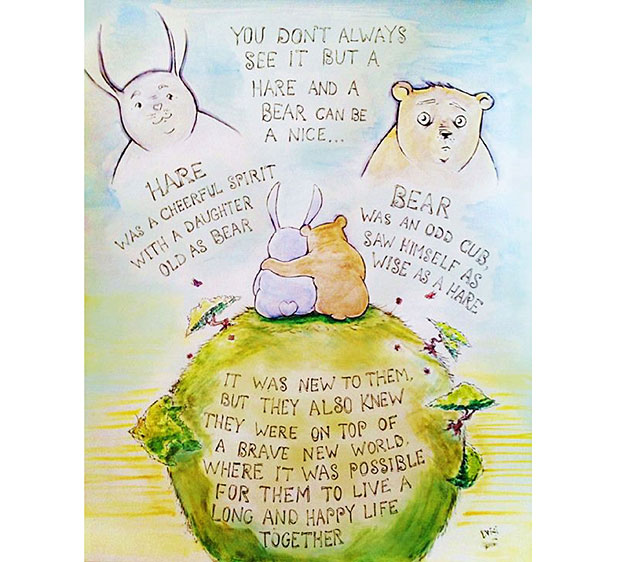 YOU DON'T ALWAYS
SEE IT BUT A
HARE AND A
BEAR CAN BE
A NICE...
HARE
WAS A CHEERFUL SPIRIT
WITH A DAUGHTER
OLD AS BEAR
BEAR
WAS AN ODD CUB,
SAW HIMSELF AS
WISE AS A HARE
IT WAS NEW TO THEM,
BUT THEY ALSO KNEW
THEY WERE ON TOP OF
A BRAVE NEW WORLD,
WHERE IT WAS POSSIBLE
FOR THEM TO LIVE A
LONG AND HAPPY LIFE
TOGETHER